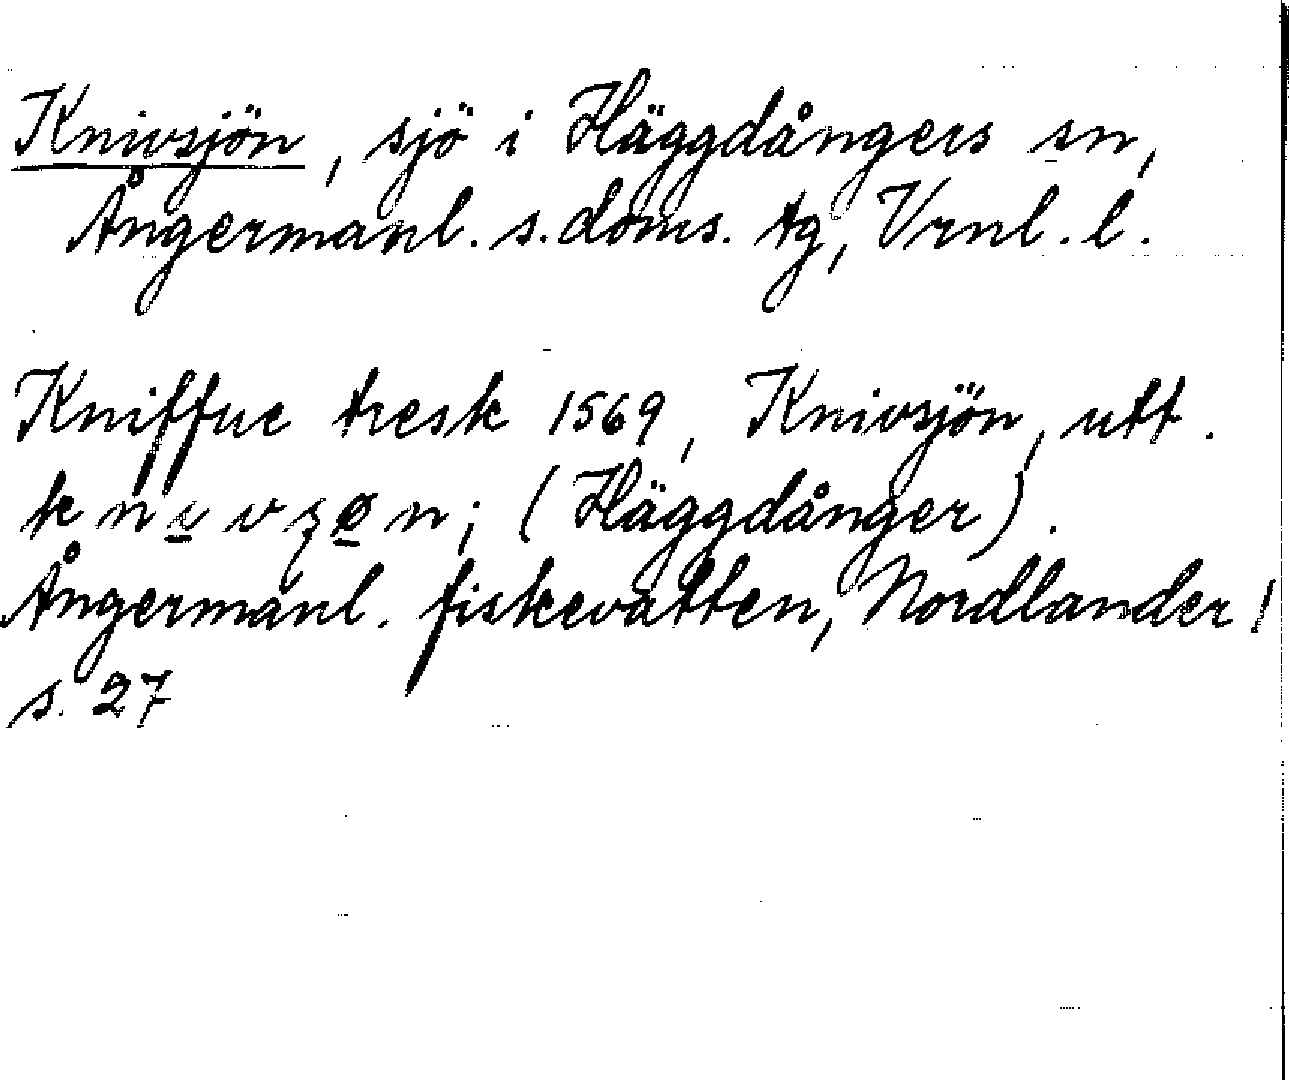 Knivsjön, sjö i Häggdångers sn,
Ångermanl. s. doms. tg, Vrnl. l.
Kniffue tresk 1569, Knivsjön, utt.
(Häggdånger).
Ångermanl. fiskevatten, Nordlander,
s. 27